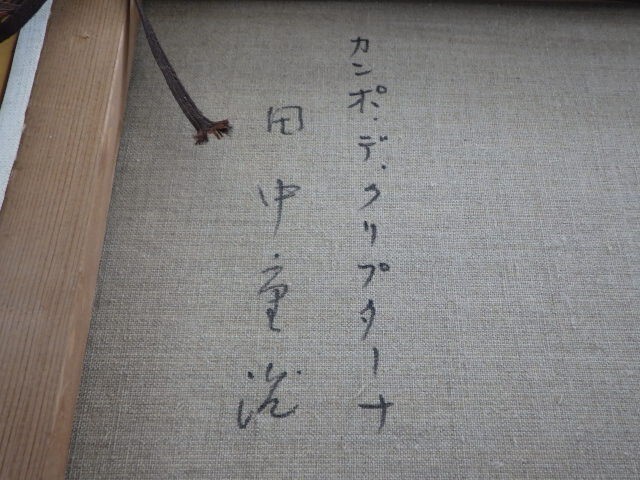 カンポ・デ・クリプターナ
田中童